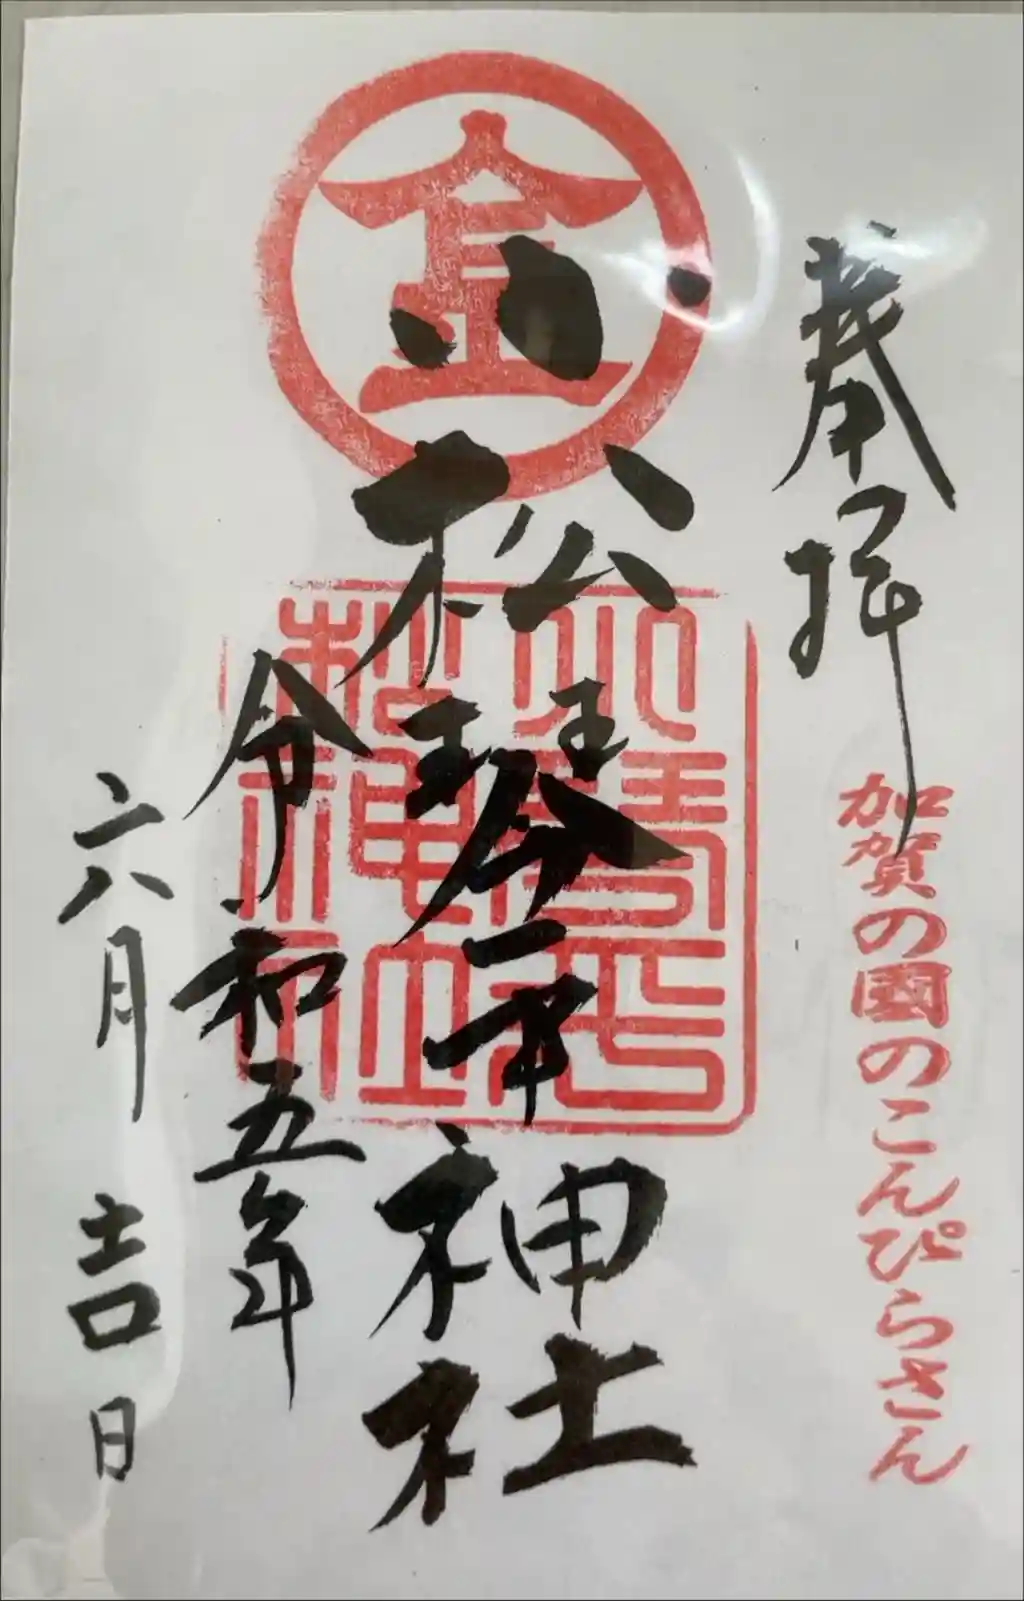 奉拝
加賀の國のこんぴらさん
金
小松琴平神社
小松琴平神社
令和五年
六月吉日